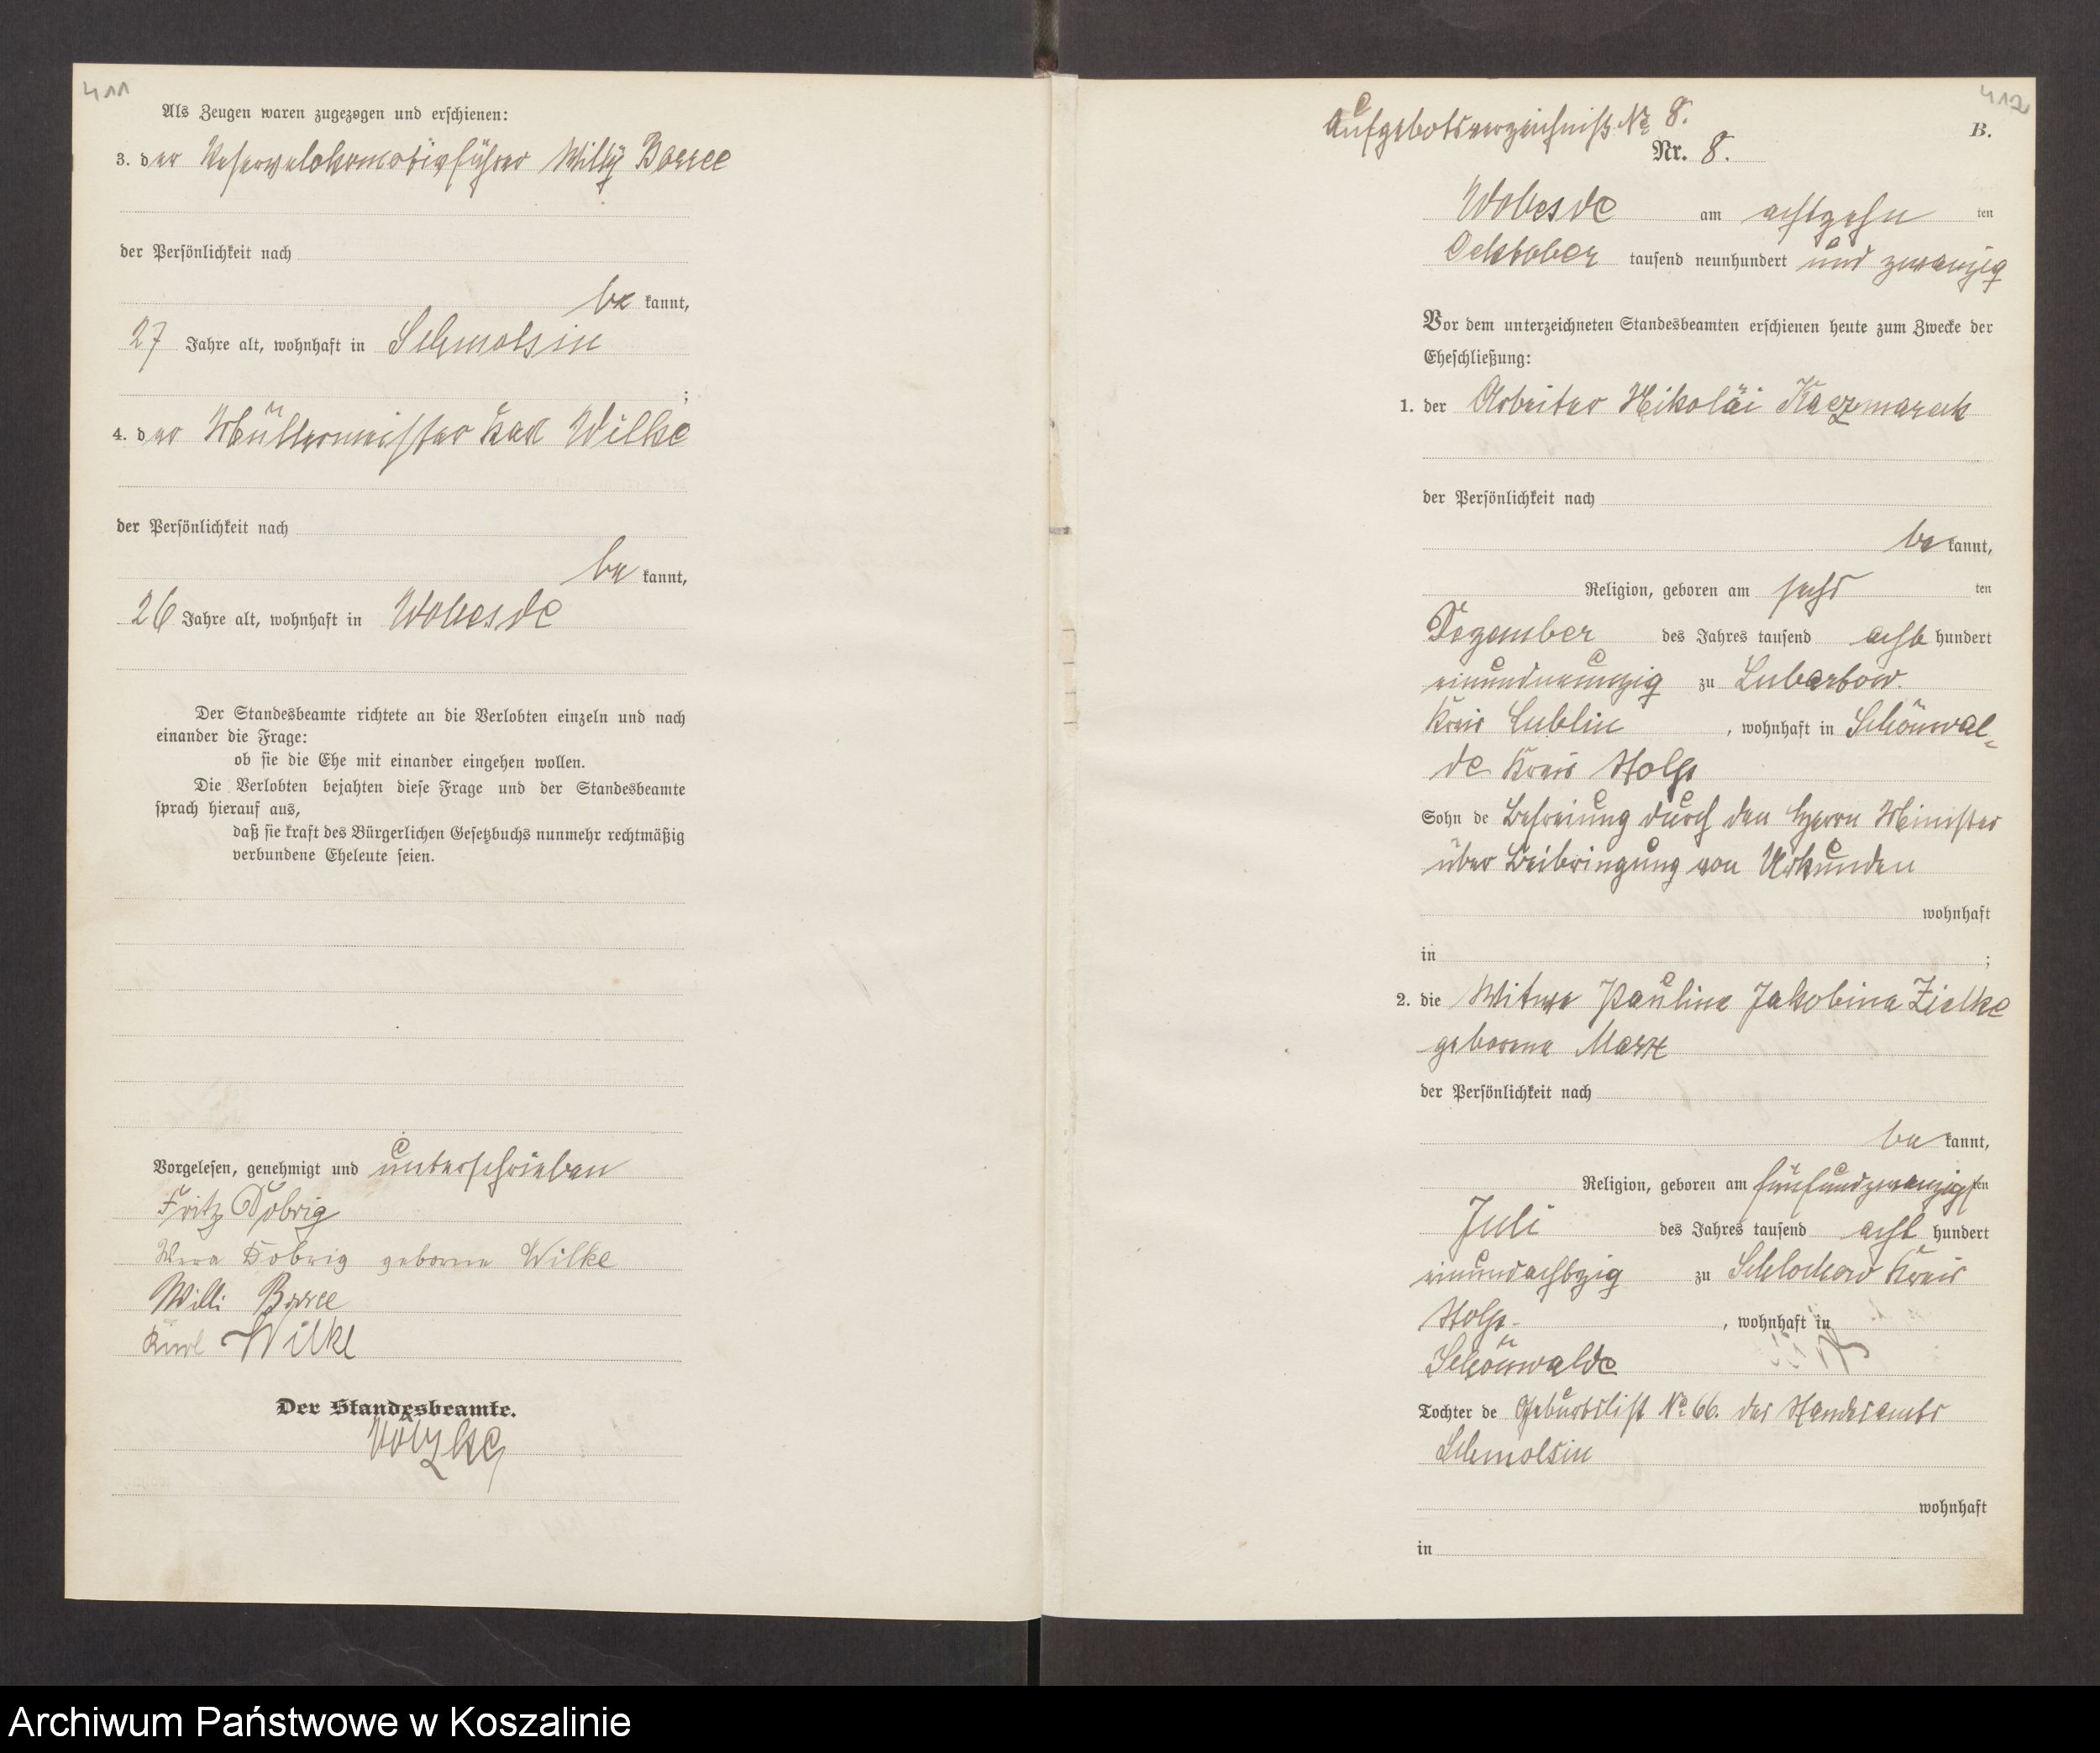 411
Als Zeugen waren zugezogen und erschienen:
3. der Reservelokomotivführer Willy Borree
der Persönlichkeit nach
be kannt,
27 Jahre alt, wohnhaft in Schmolsin
;
4. der Müllermeister Karl Wilke
der Persönlichkeit nach
be kannt,
26 Jahre alt, wohnhaft in Wobesde
Der Standesbeamte richtete an die Verlobten einzeln und nach
einander die Frage:
ob sie die Ehe mit einander eingehen wollen.
Die Verlobten bejahten diese Frage und der Standesbeamte
sprach hierauf aus,
daß sie kraft des Bürgerlichen Gesetzbuchs nunmehr rechtmäßig
verbundene Eheleute seien.
Vorgelesen, genehmigt und unterschrieben
Fritz Dobrig
Wera Dobrig geborene Wilke
Willi Borree
Karl Wilke
Der Standesbeamte.
Völzke
412
Aufgebotsverzeichniß No 8.
B.
Nr. 8.
Wobesde am achtzehn ten
Oktober tausend neunhundert und zwanzig
Vor dem unterzeichneten Standesbeamten erschienen heute zum Zwecke der
Eheschließung:
1. der Arbeiter Nikolai Kaczmarek
der Persönlichkeit nach
be kannt,
Religion, geboren am sechs ten
Dezember des Jahres tausend acht hundert
einundneunzig zu Lubartow.
Kreis Lublin , wohnhaft in Schönwal-
de Kreis Stolp
Sohn de Befreiung durch den Herrn Minister
über Beibringung von Urkunden
wohnhaft
in ;
2. die Witwe Pauline Jakobine Zielke
geborene Marx
der Persönlichkeit nach
be kannt,
Religion, geboren am fünfundzwanzigsten
Juli des Jahres tausend acht hundert
einundachtzig zu Schlochow Kreis
Stolp , wohnhaft in
Schönwalde
Tochter de Geburtslist No 66. des Standesamts
Schmolsin
wohnhaft
in
Archiwum Państwowe w Koszalinie